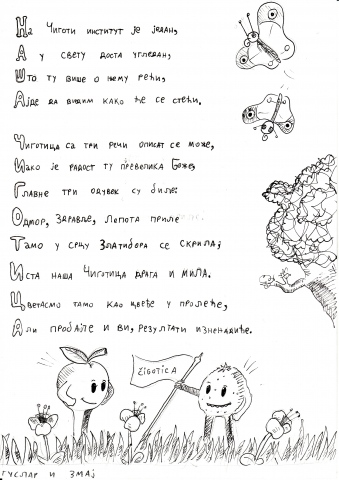 На Чиготи институт је један,
А у свету доста угледан,
Што ту више о њему рећи,
Ајде да видим како ће се стећи.
Чиготица са три речи описат се може,
Иако је радост ту превелика Боже,
Главне три одувек су биле:
Одмор, здравље, лепота
Тамо у срцу Златибора се скрилај
Иста наша Чиготица драга и мила.
Цветамо тамо као цвеће у пролеће,
Али пробајте и ви, резултати изненадиће.
ČIGOTICA
ГУСЛАР И ЗМАЈ